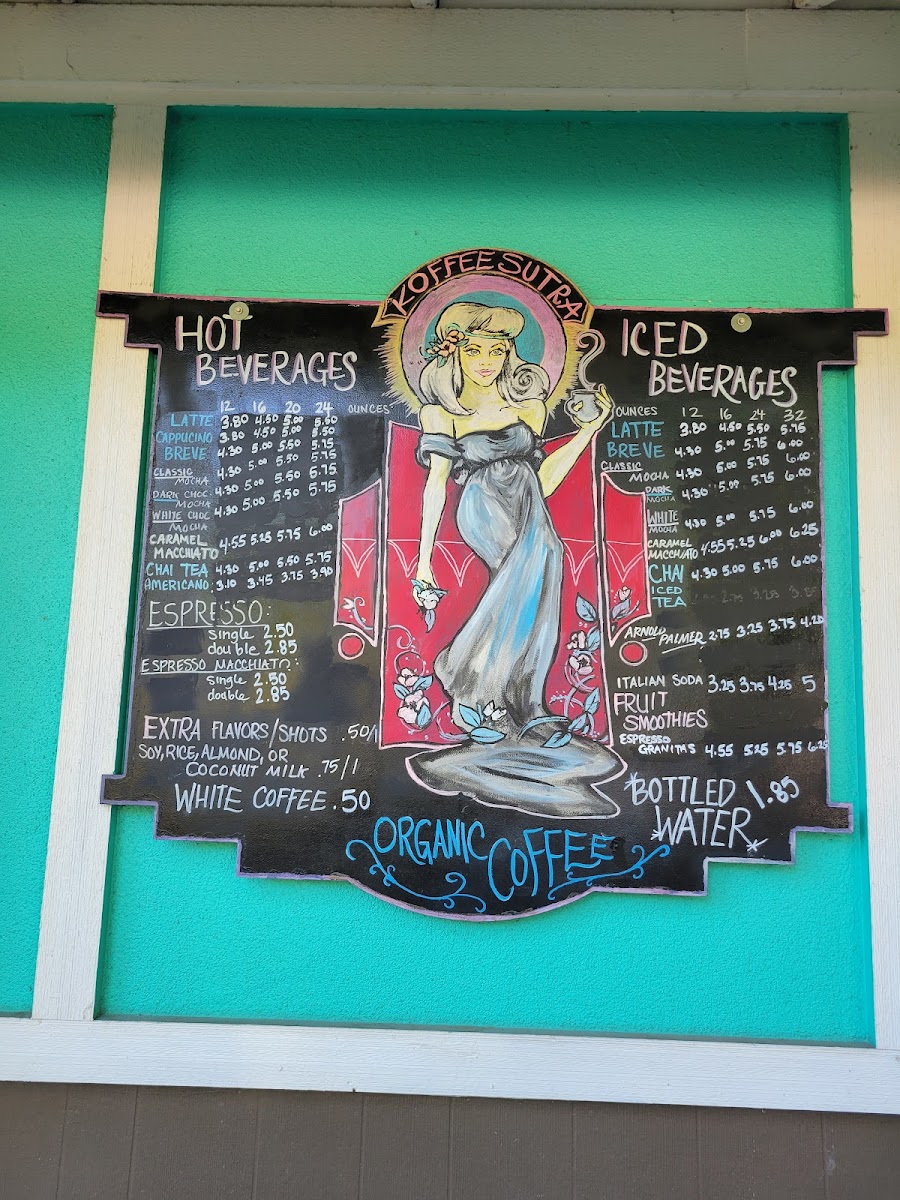 KOFFEE SUTRA
HOT
BEVERAGES
12 16 20 24 OUNCES
LATTE 3.80 4.50 5.00 5.50
CAPPUCINO 3.80 4.50 5.00 5.50
BREVE 4.30 5.00 5.50 5.75
CLASSIC
MOCHA 4.30 5.00 5.50 5.75
DARK CHOC
MOCHA 4.30 5.00 5.50 5.75
WHITE CHOC
MOCHA 4.30 5.00 5.50 5.75
CARAMEL
MACCHIATO 4.55 5.25 5.75 6.00
CHAI TEA 4.30 5.00 5.50 5.75
AMERICANO 3.10 3.45 3.75 3.90
ESPRESSO:
single 2.50
double 2.85
ESPRESSO MACCHIATO:
single 2.50
double 2.85
EXTRA FLAVORS/SHOTS .50/1
SOY, RICE, ALMOND, OR
COCONUT MILK .75/1
WHITE COFFEE .50
ICED
BEVERAGES
OUNCES 12 16 24 32
LATTE 3.80 4.50 5.50 5.75
BREVE 4.30 5.00 5.75 6.00
CLASSIC
MOCHA 4.30 5.00 5.75 6.00
DARK
MOCHA 4.30 5.00 5.75 6.00
WHITE
MOCHA 4.30 5.00 5.75 6.00
CARAMEL
MACCHIATO 4.55 5.25 6.00 6.25
CHAI 4.30 5.00 5.75 6.00
ICED
TEA 2.75 3.25
ARNOLD
PALMER 2.75 3.25 3.75 4.20
ITALIAN SODA 3.25 3.75 4.25 5
FRUIT
SMOOTHIES
ESPRESSO
GRANITAS 4.55 5.25 5.75 6.25
*BOTTLED 1.85
WATER*
ORGANIC COFFEE